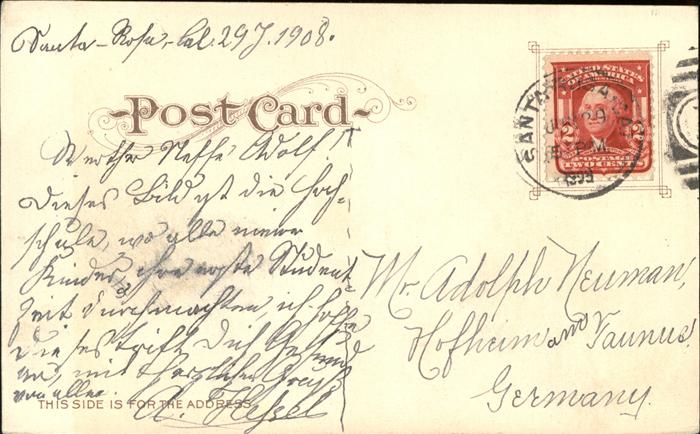 Santa-Rosa, Cal. 29 J. 1908.
Post Card
Werther Neffe Adolf!
Dieses Bild ist die Hoch-
schule, wo alle meine
Kinder ihre erste Student-
Zeit durchmachten, ich hoffe
Dieses trifft Dich Gesund
an, mit Herzlichen Gruß
von allen
A. Hessel
THIS SIDE IS FOR THE ADDRESS
UNITED STATES
OF AMERICA
2
POSTAGE
TWO CENTS
SANTA ROSA, CAL.
JAN 29
5 P.M.
Mr. Adolph Neuman,
Hofheim am Taunus
Germany.